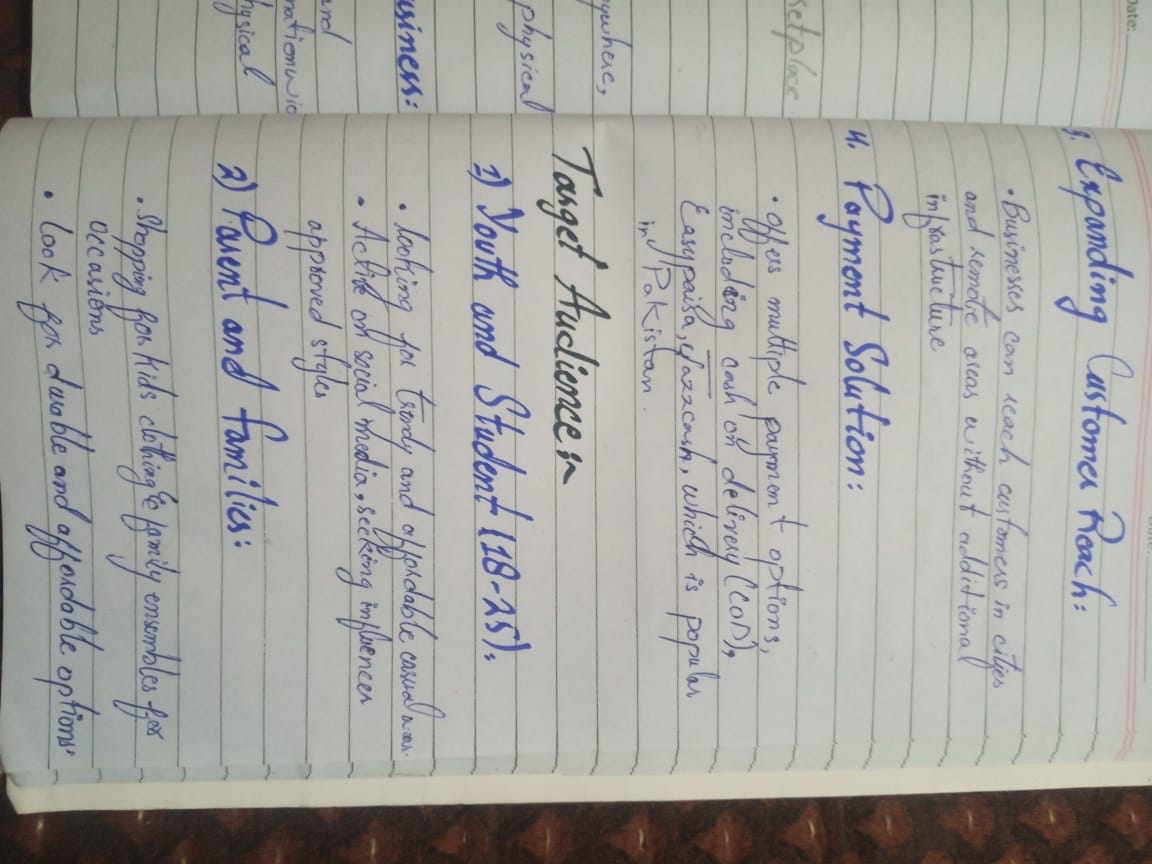 Date:
etplace
ywhere,
physical
usiness:
and
nationwid
hysical
3. Expanding Customer Reach:
• Businesses can reach customers in cities
and remote areas without additional
infrastructure
4. Payment Solution:
• Offers multiple payment options,
including cash on delivery (COD),
Easypaisa, Jazzcash, which is popular
in Pakistan.
Target Audience:~
1) Youth and Student (18-25).
• looking for trendy and affordable casual wear.
• Active on social media, seeking influencer
approved styles
2) Parent and families:
• Shopping for kids clothing & family ensembles for
occasions
• Look for durable and affordable options.